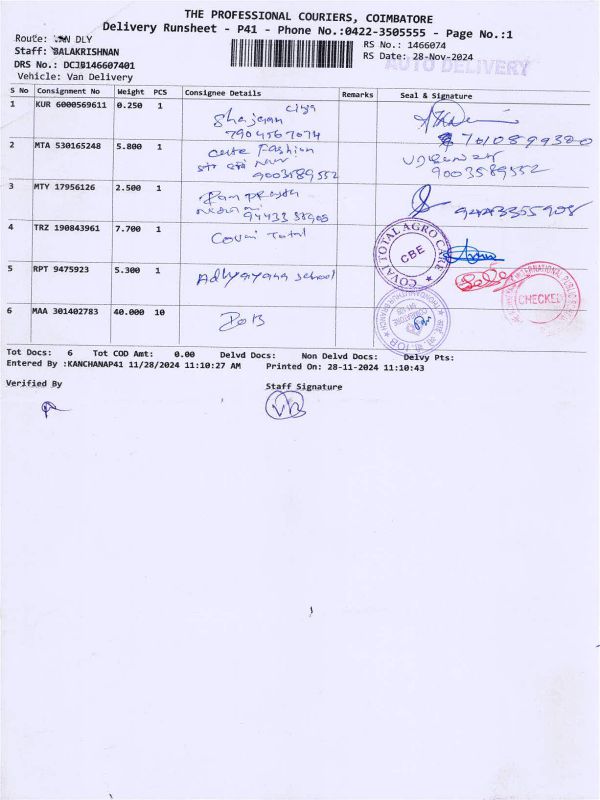 THE PROFESSIONAL COURIERS, COIMBATORE
Delivery Runsheet - P41 - Phone No.:0422-3505555 - Page No.:1
Route: VAN DLY
RS No.: 1466074
Staff: BALAKRISHNAN
RS Date: 28-Nov-2024
AUTO DELIVERY
DRS No.: DCJB146607401
Vehicle: Van Delivery
S No Consignment No Weight PCS Consignee Details Remarks Seal & Signature
1 KUR 6000569611 0.250 1
7904567074
2 MTA 530165248 5.800 1 Cute Fashion
9003589552 9003589552
3 MTY 17956126 2.500 1
4 TRZ 190843961 7.700 1 Covai Total
COVAI TOTAL AGRO CARE
CBE
5 RPT 9475923 5.300 1 Adhyayana School
INTERNATIONAL PUBLIC SCHOOL
CHECKED
6 MAA 301402783 40.000 10
IOB
COIMBATORE
Tot Docs: 6 Tot COD Amt: 0.00 Delvd Docs: Non Delvd Docs: Delvy Pts:
Entered By :KANCHANAP41 11/28/2024 11:10:27 AM Printed On: 28-11-2024 11:10:43
Verified By Staff Signature